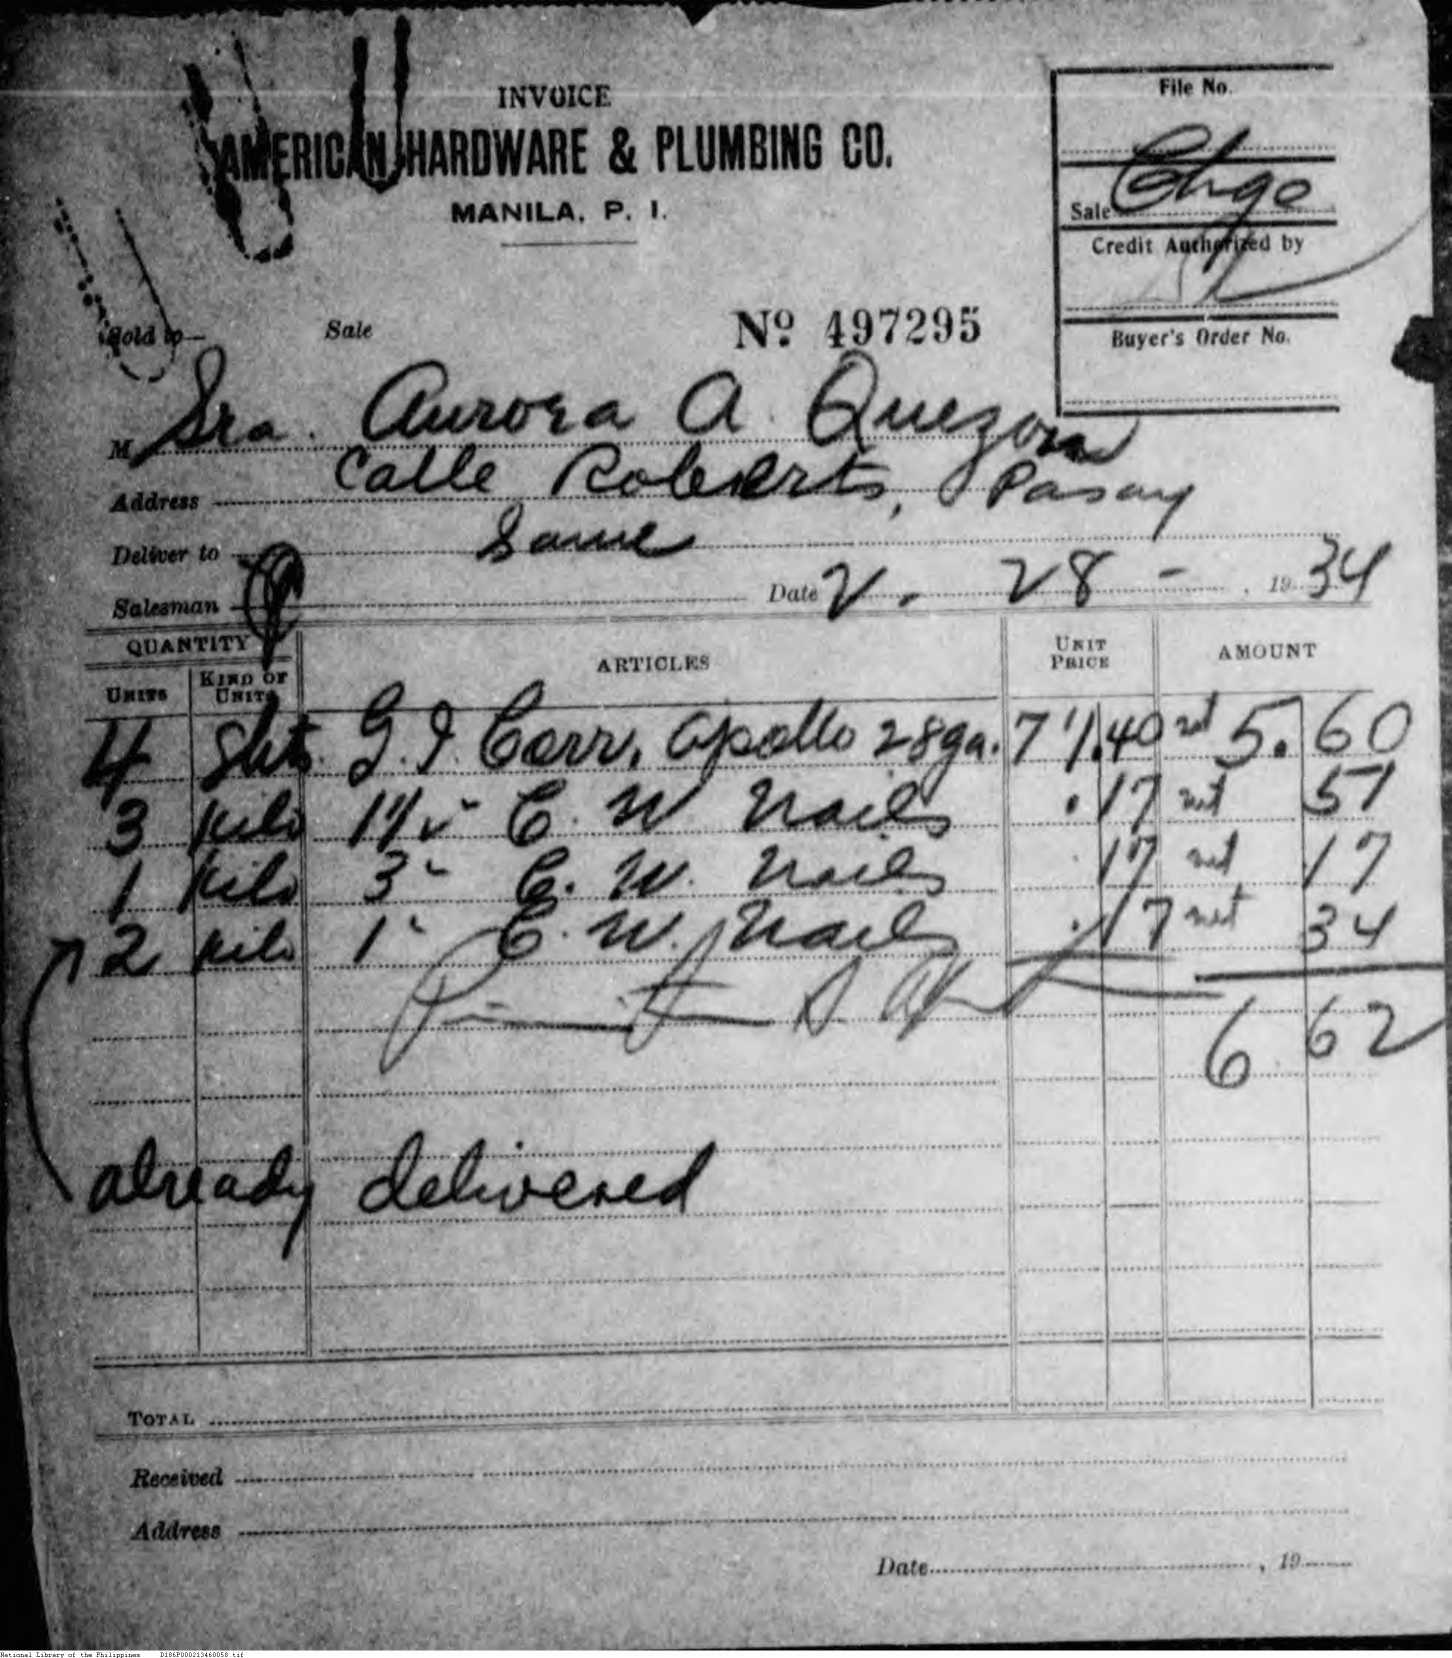 INVOICE
AMERICAN HARDWARE & PLUMBING CO.
MANILA, P. I.
File No.
Sale Chge
Credit Authorized by
Buyer's Order No.
Sold to Sale Nº 497295
M Sra. Aurora A. Quezon
Address Calle Roberts, Pasay
Deliver to Same
Salesman Date 2. 28 - , 19 34
QUANTITY ARTICLES UNIT PRICE AMOUNT
UNITS KIND OF UNITS
4 Shts. G. I. Corr. Apollo 28 ga. 7' 1.40 net 5.60
3 kilo 1½" C. W. Nails .17 net 51
1 kilo 3" C. W. Nails .17 net 17
2 kilo 1" C. W. Nails .17 net 34
6.62
already delivered
TOTAL
Received
Address
Date , 19
National Library of the Philippines D186P000213460058.tif